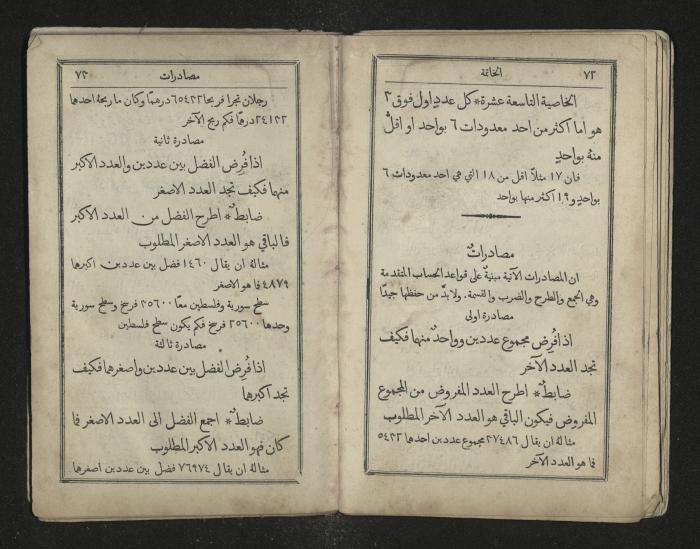 ٧٢
الخاتمة
الخاصية التاسعة عشرة* كل عددٍ اول فوق ٣
هو اما اكثر من احد معدودات ٦ بواحد او اقلُّ
منهُ بواحدٍ
فان ١٧ مثلاً اقل من ١٨ التي هي احد معدودات ٦
بواحدٍ و١٩ اكثر منها بواحد
مصادراتٌ
ان المصادرات الآتية مبنيةٌ على قواعد الحساب المتقدمة
وهي الجمع والطرح والضرب والقسمة. ولا بدَّ من حفظها جيدًا
مصادرة اولى
اذا فُرِض مجموع عددين وواحدٌ منهما فكيف
تجد العدد الآخر
ضابطٌ* اطرح العدد المفروض من المجموع
المفروض فيكون الباقي هو العدد الآخر المطلوب
مثالهُ ان يقال ٢٧٤٨٦ مجموع عددين احدها ٥٤٢٢
فما هو العدد الآخر
مصادرات
٧٣
رجلان تجرا فربحا ٦٥٤٢٢ درهمًا وكان ما ربحهُ احدها
٢٤١٢٢ درهمًا فكم ربح الآخر
مصادرة ثانية
اذا فُرِض الفضل بين عددين والعدد الاكبر
منهما فكيف تجد العدد الاصغر
ضابطٌ* اطرح الفضل من العدد الاكبر
فالباقي هو العدد الاصغر المطلوب
مثالهُ ان يقال ١٤٦٠ فضل بين عددين اكبرها
٤٨٧٩ فما هو الاصغر
سطح سورية وفلسطين معًا ٣٥٦٠٠ فرسخ وسطح سورية
وحدها ٢٥٦٠٠ فرسخ فكم يكون سطح فلسطين
مصادرة ثالثة
اذا فُرِض الفضل بين عددين واصغرهما فكيف
تجد اكبرهما
ضابطٌ* اجمع الفضل الى العدد الاصغر فما
كان فهو العدد الاكبر المطلوب
مثالهُ ان يقال ٧٦٩٧٤ فضل بين عددين اصغرها